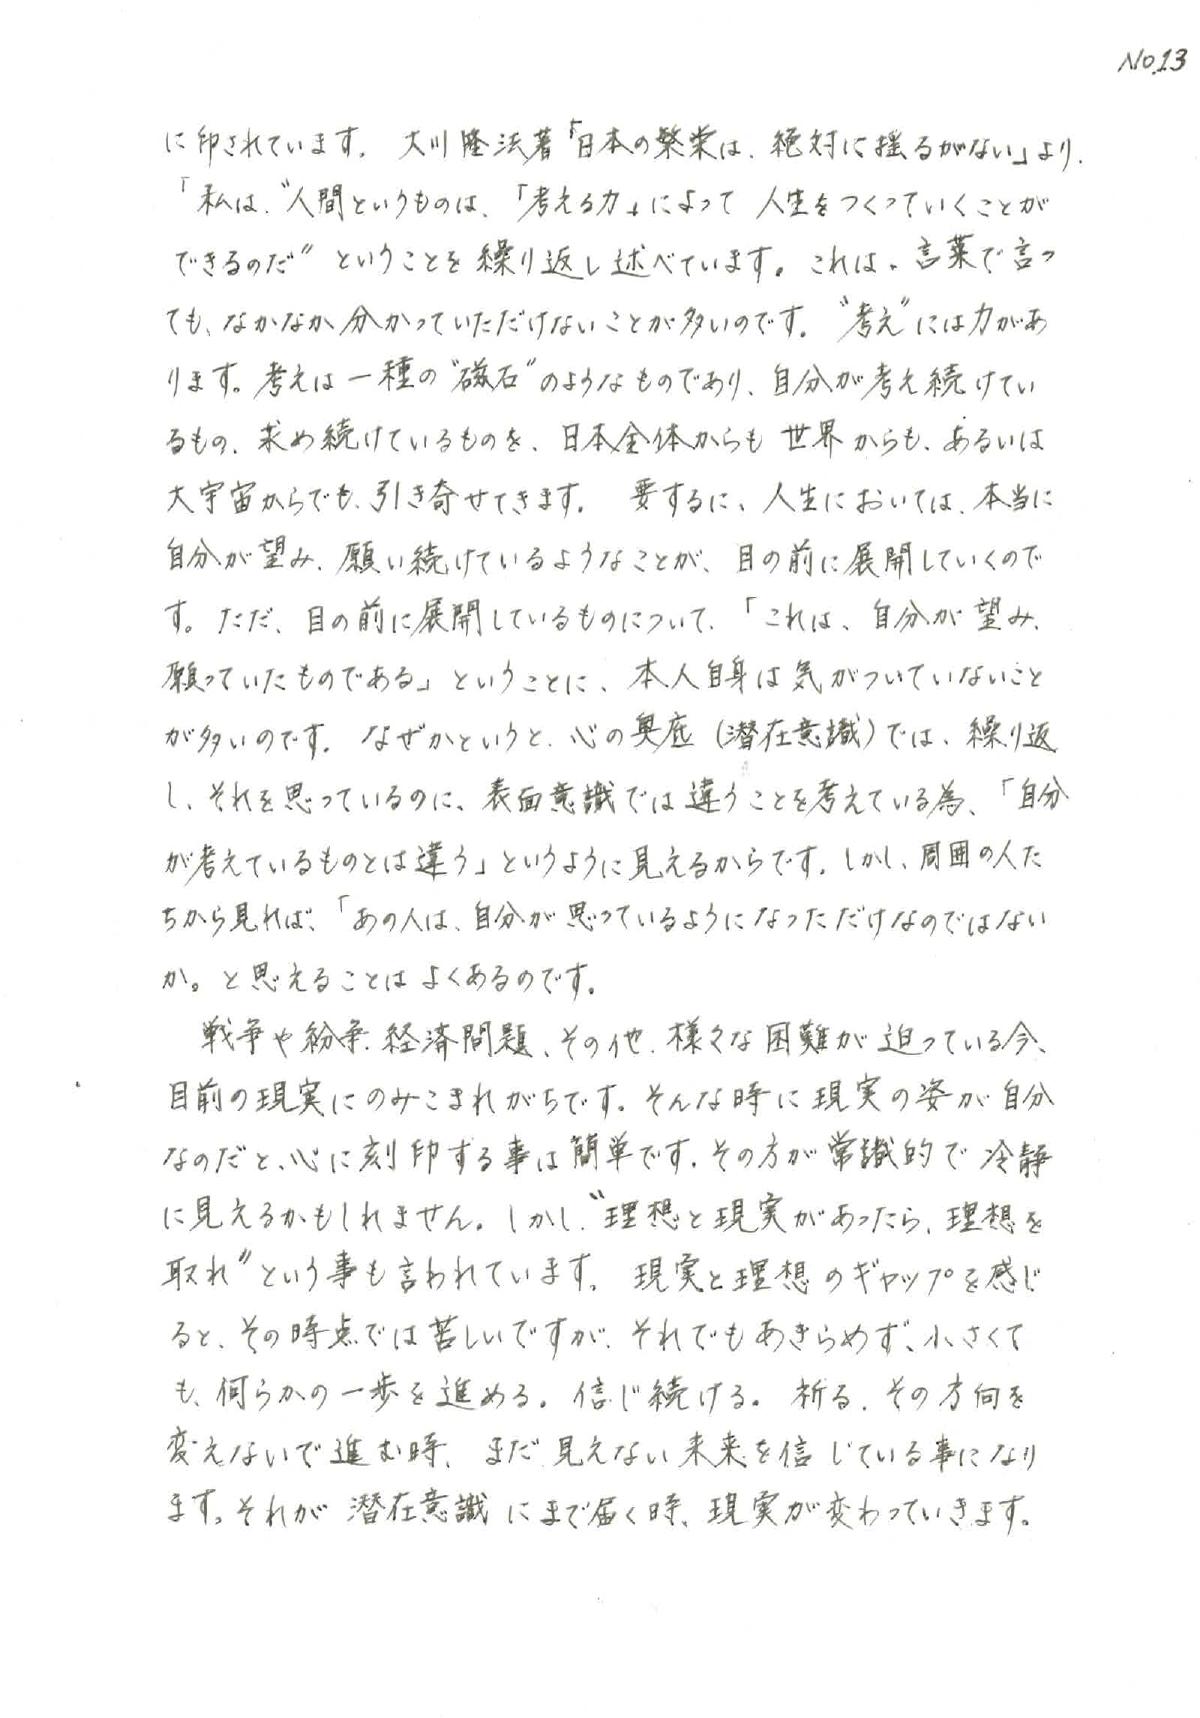 No.13
に印されています。 大川隆法著「日本の繁栄は、絶対に揺るがない」より、
「私は、“人間というものは、「考える力」によって 人生をつくっていくことが
できるのだ” ということを 繰り返し述べています。これは、言葉で言っ
ても、なかなか分かっていただけないことが多いのです。“考え”には力があ
ります。考えは一種の“磁石”のようなものであり、自分が考え続けてい
るもの、求め続けているものを、日本全体からも 世界からも、あるいは
大宇宙からでも、引き寄せてきます。 要するに、人生においては、本当に
自分が望み、願い続けているようなことが、目の前に展開していくので
す。ただ、目の前に展開しているものについて、「これは、自分が望み、
願っていたものである」ということに、本人自身は気がついていないこと
が多いのです。 なぜかというと、心の奥底(潜在意識)では、繰り返
し、それを思っているのに、表面意識では違うことを考えている為、「自分
が考えているものとは違う」というように見えるからです。しかし、周囲の人た
ちから見れば、「あの人は、自分が思っているようになっただけなのではない
か。と思えることはよくあるのです。
戦争や紛争、経済問題、その他、様々な困難が迫っている今、
目前の現実にのみこまれがちです。そんな時に現実の姿が自分
なのだと、心に刻印する事は簡単です。その方が常識的で冷静
に見えるかもしれません。しかし、“理想と現実があったら、理想を
取れ”という事も言われています。 現実と理想のギャップを感じ
ると、その時点では苦しいですが、それでもあきらめず、小さくて
も、何らかの一歩を進める。信じ続ける。祈る、その方向を
変えないで進む時、まだ見えない未来を信じている事になり
ます。それが 潜在意識にまで届く時、現実が変わっていきます。